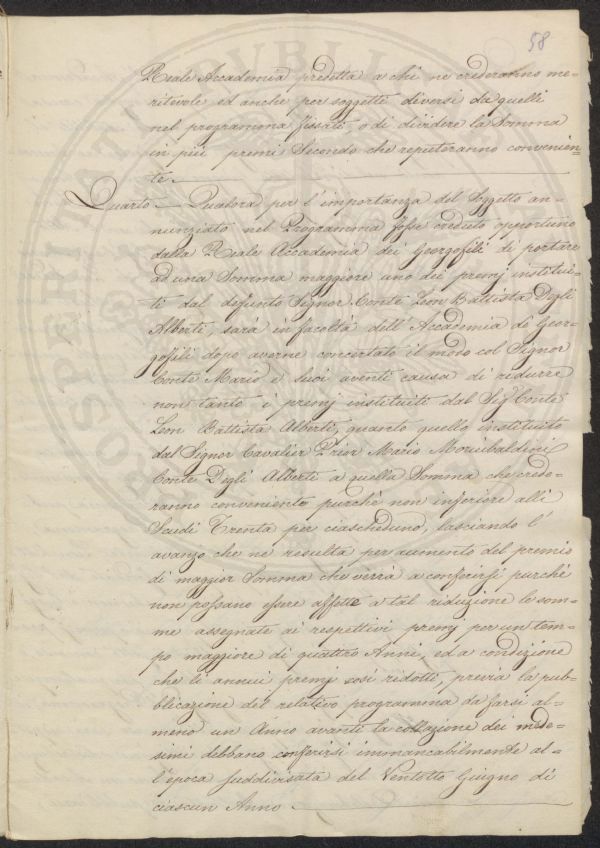 58
Reale Accademia predetta a chi ne crederanno me=
ritevole ed anche per soggetti diversi da quelli
nel programma fissati, o di dividere la Somma
in più premj Secondo che reputeranno convenien=
te.
Quarto — Qualora per l'importanza del Soggetto an=
nunziato nel Programma fosse creduto opportuno
dalla Reale Accademia dei Georgofili di portare
ad una Somma maggiore uno dei premj institui=
ti dal defunto Signor Conte Leon Battista Degli
Alberti, sarà in facoltà dell'Accademia de Geor=
gofili dopo averne concertato il modo col Signor
Conte Mario e suoi aventi causa di ridurre
non tanto i premj instituiti dal Sig.r Conte
Leon Battista Alberti, quanto quello instituito
dal Signor Cavalier Prior Mario Moriubaldini
Conte Degli Alberti a quella Somma che crede=
ranno conveniente purchè non inferiore alli
Scudi Trenta per ciascheduno, lasciando l'
avanzo che ne resulta per aumento del premio
di maggior Somma che verrà a conferirsi purchè
non possano essere affette a tal riduzione le som=
me assegnate ai respettivi premj per un tem=
po maggiore di quattro Anni, ed a condizione
che li annui premj così ridotti, previa la pub=
blicazione del relativo programma da farsi al=
meno un Anno avanti la collazione dei mede=
simi debbano conferirsi immancabilmente al=
l'epoca suddivisata del Ventotto Giugno di
ciascun Anno
PROSPERITATI PUBLI